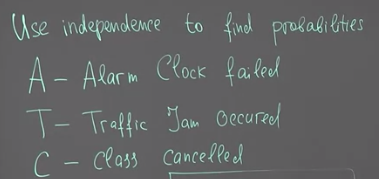 Use independence to find probabilities
A - Alarm Clock failed
T - Traffic Jam Occured
C - Class Cancelled